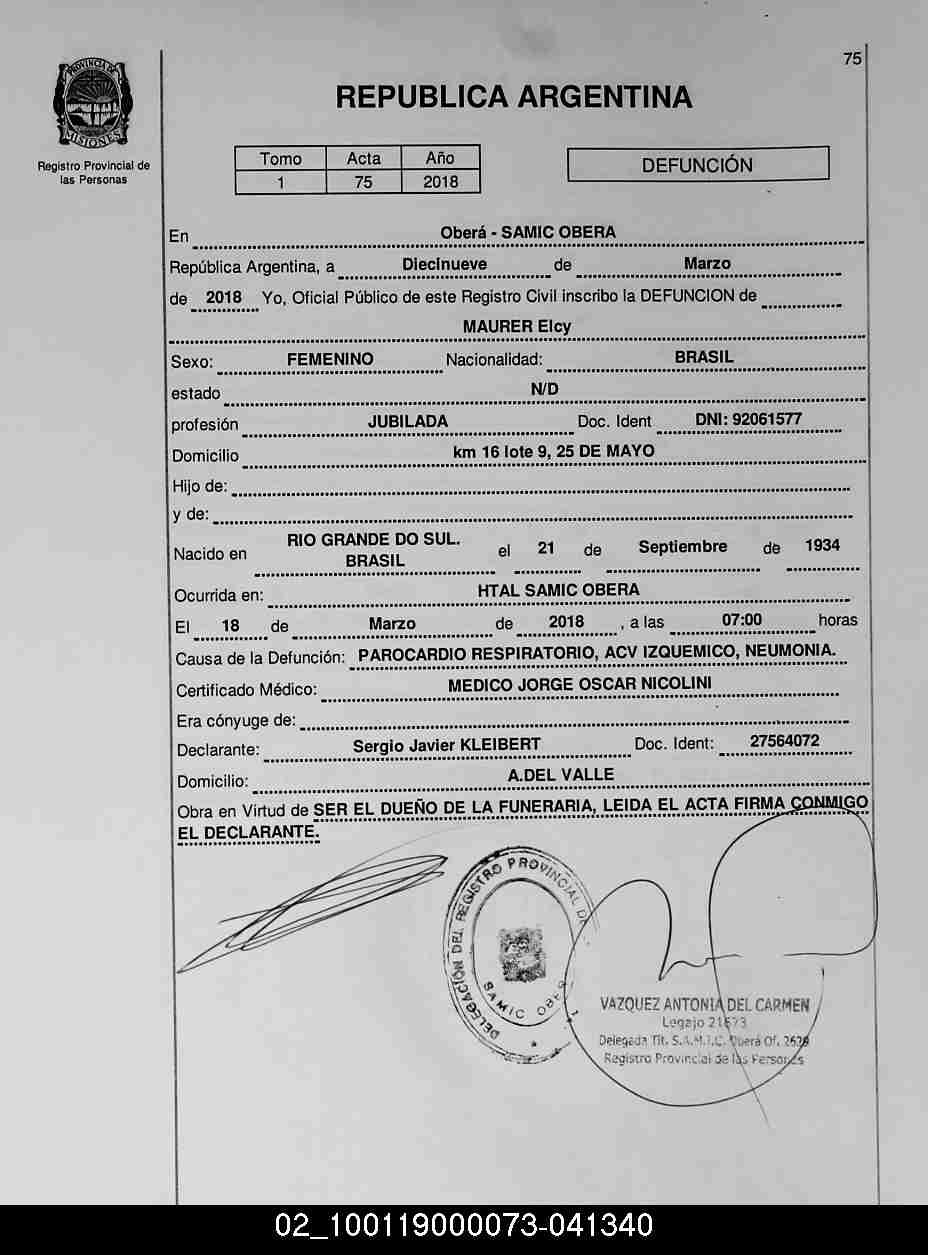 75
PROVINCIA DE
MISIONES
Registro Provincial de
las Personas
REPUBLICA ARGENTINA
Tomo Acta Año
1 75 2018
DEFUNCIÓN
En Oberá - SAMIC OBERA
República Argentina, a Diecinueve de Marzo
de 2018 Yo, Oficial Público de este Registro Civil inscribo la DEFUNCION de
MAURER Elcy
Sexo: FEMENINO Nacionalidad: BRASIL
estado N/D
profesión JUBILADA Doc. Ident DNI: 92061577
Domicilio km 16 lote 9, 25 DE MAYO
Hijo de:
y de:
Nacido en RIO GRANDE DO SUL. BRASIL el 21 de Septiembre de 1934
Ocurrida en: HTAL SAMIC OBERA
El 18 de Marzo de 2018 , a las 07:00 horas
Causa de la Defunción: PAROCARDIO RESPIRATORIO, ACV IZQUEMICO, NEUMONIA.
Certificado Médico: MEDICO JORGE OSCAR NICOLINI
Era cónyuge de:
Declarante: Sergio Javier KLEIBERT Doc. Ident: 27564072
Domicilio: A.DEL VALLE
Obra en Virtud de SER EL DUEÑO DE LA FUNERARIA, LEIDA EL ACTA FIRMA CONMIGO
EL DECLARANTE.
DELEGACIÓN DEL REGISTRO PROVINCIAL DE
SAMIC
VAZQUEZ ANTONIA DEL CARMEN
Legajo
Delegada Tit. S.A.M.I.C. Oberá Of. 2629
Registro Provincial de las Personas
02_100119000073-041340